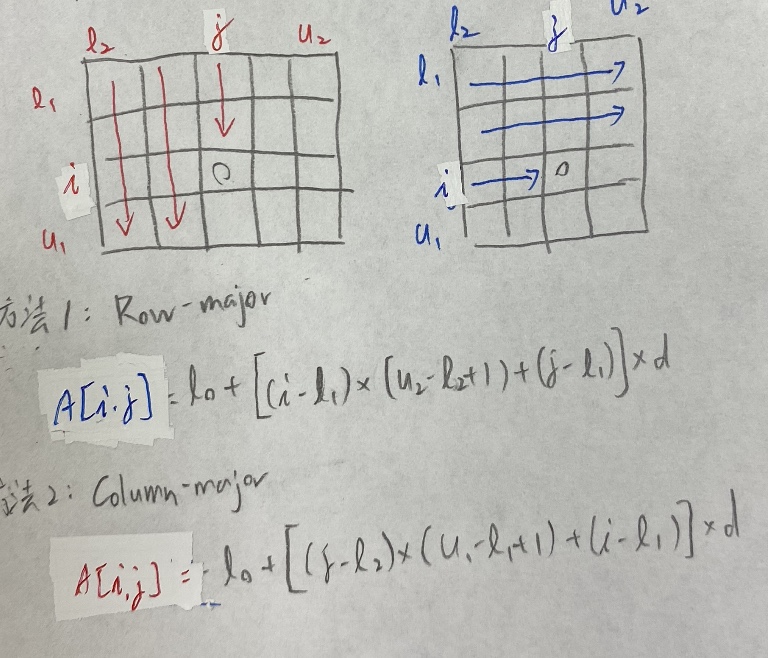 l₂ j u₂
l₁
i
u₁
l₂ j u₂
l₁
i
u₁
方法1: Row-major
A[i.j] = l₀ + [(i-l₁)×(u₂-l₂+1)+(j-l₁)]×d
法2: Column-major
A[i,j] = l₀ + [(j-l₂)×(u₁-l₁+1)+(i-l₁)]×d